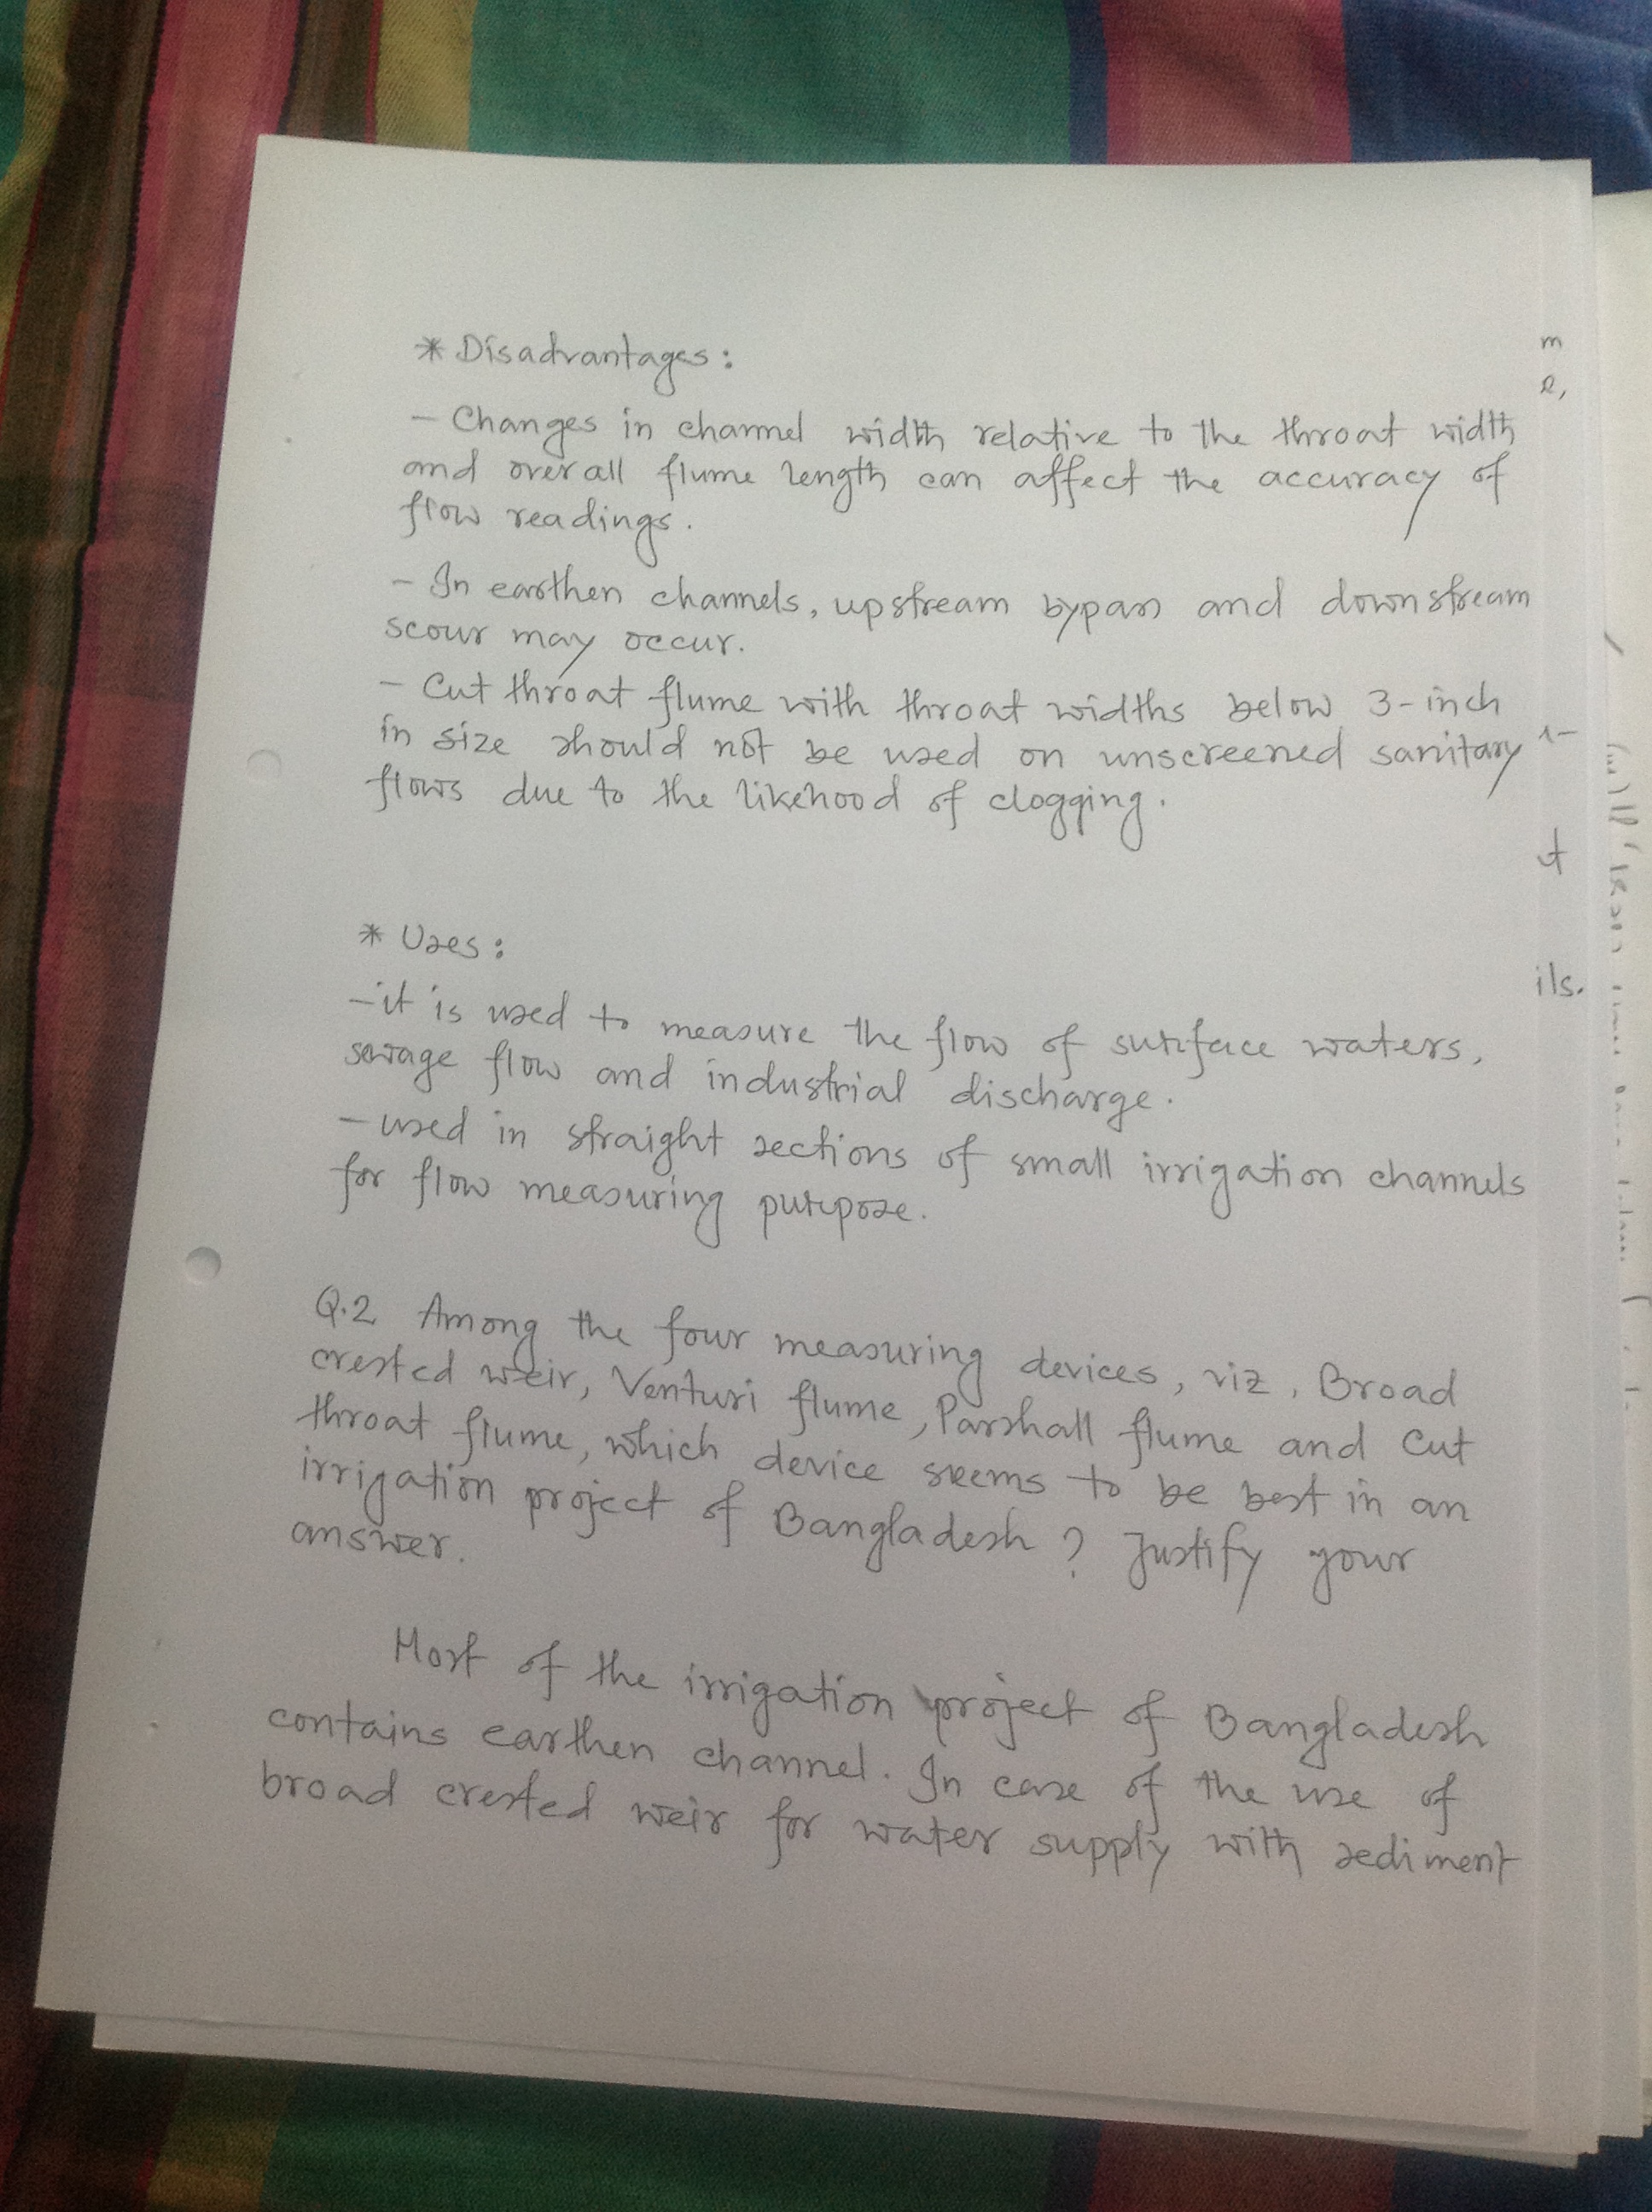 * Disadvantages:
- Changes in channel width relative to the throat width
and overall flume length can affect the accuracy of
flow readings.
- In earthen channels, upstream bypass and downstream
scour may occur.
- Cut throat flume with throat widths below 3-inch
in size should not be used on unscreened sanitary
flows due to the likehood of clogging.
* Uses:
- it is used to measure the flow of surface waters,
sewage flow and industrial discharge.
- used in straight sections of small irrigation channels
for flow measuring purpose.
Q.2 Among the four measuring devices, viz, Broad
crested weir, Venturi flume, Parshall flume and Cut
throat flume, which device seems to be best in an
irrigation project of Bangladesh? Justify your
answer.
Most of the irrigation project of Bangladesh
contains earthen channel. In case of the use of
broad crested weir for water supply with sediment
m
e,
t
ils.